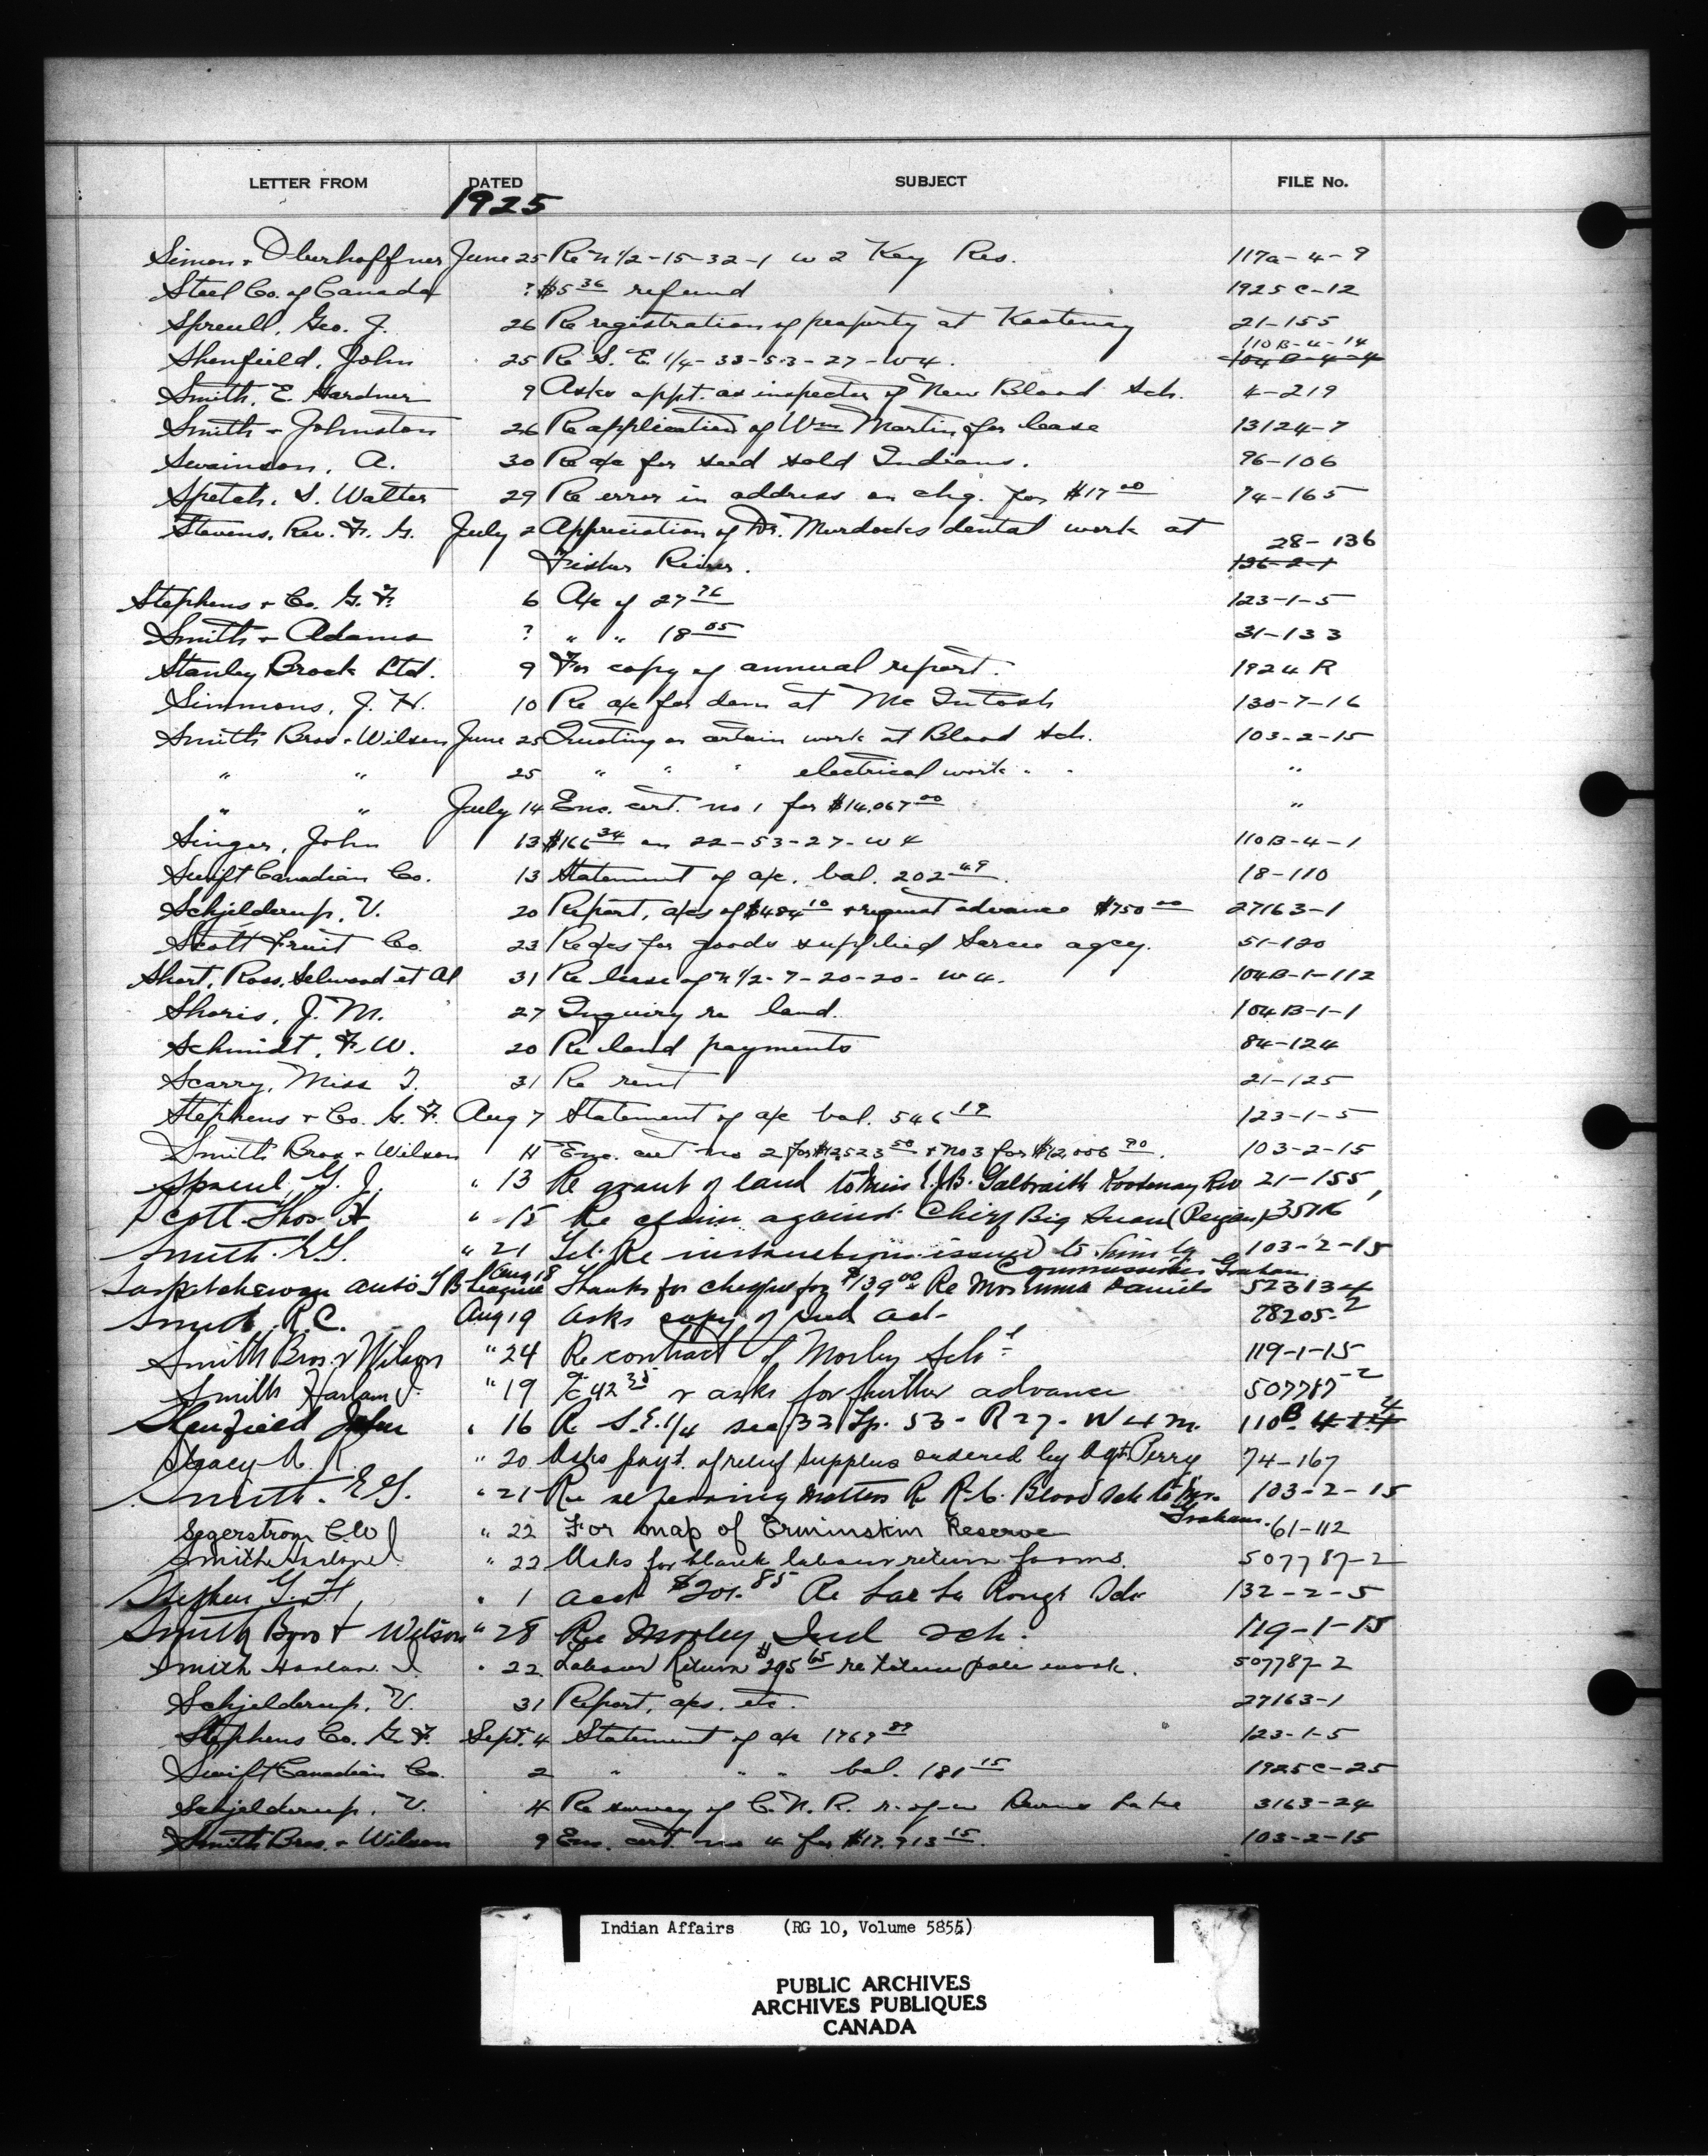 LETTER FROM DATED SUBJECT FILE No.
1925
Simon & Oberhoffner June 25 Re N 1/2-15-32-1 W 2 Key Res. 117a-4-9
Steel Co. of Canada ? $5 36 refund 1925 C-12
Spreull, Geo. J. 26 Re registration of property at Kootenay 21-155
110B-4-14
Shenfield, John 25 Re S. E 1/4-33-53-27-W4. 104B-4-4
Smith, E. Gardner 9 Asks appt. as inspector of New Blood Sch. 4-219
Smith & Johnston 26 Re application of Wm Martin for lease 13124-7
Swainson, A. 30 Re a/c for seed sold Indians. 96-106
Spetch, S. Walter 29 Re error in address on chq. for $17 00 74-165
Stevens, Rev. F. G. July 2 Appreciation of Dr. Murdocks dental work at 28-136
Fisher River. 136-2-1
Stephens & Co. G. F. 6 A/c of 27 76 123-1-5
Smith & Adams ? " " 18 05 31-133
Stanley Brock Ltd. 9 For copy of annual report. 1924 R
Simmons, J. H. 10 Re a/c for dem at McIntosh 130-7-16
Smith Bros & Wilson June 25 Quoting on certain work at Blood Sch. 103-2-15
" " 25 " " " electrical work " " "
" " July 14 Enc. cert. no 1 for $14,067 00 "
Singer, John 13 $166 34 on 22-53-27-W4 110B-4-1
Swift Canadian Co. 13 Statement of a/c. bal. 202 49. 18-110
Schjelderup, V. 20 Report, a/cs of $484 10 & request advance $750 00 27163-1
Scott Fruit Co. 23 Re a/cs for goods supplied Sarcee agcy. 51-120
Short, Ross, Selwood et Al 31 Re lease of N 1/2-7-20-20-W4. 104B-1-112
Shoris, J. M. 27 Inquiry re land. 104B-1-1
Schmidt, F. W. 20 Re land payments 84-124
Scarry, Miss T. 31 Re rent 21-125
Stephens & Co. G. F. Aug 7 Statement of a/c bal. 546 19 123-1-5
Smith Bros & Wilson 11 Enc. cert no 2 for $12523 50 & no 3 for $12,006 90. 103-2-15
Spreul, G. J. " 13 Re grant of land to Miss E.J.B. Galbraith Kootenay Riv 21-155
Scott Thos. A " 15 Re claim against Chief Big Swan (Peigan) 35716
Smith. E.G. " 21 Tel. Re instructions issued to him by 103-2-15
Commissioner Graham
Saskatchewan Auto T B League Aug 18 Thanks for cheque for $139 00 Re Mrs Emma Daniels 523134
Smith. R.C. Aug 19 asks copy of Ind Act 78205-2
Smith Bros. & Wilson " 24 Re contract of Morley Schl 119-1-15
Smith Harlan I. " 19 42 35 & asks for further advance 507787-2
Shenfield John " 16 Re S.E. 1/4 sec 33 Tp. 53-R 27-W 4 m. 110B 4-14
Stacy " 20 Asks payt. of relief supplies ordered by Agt Perry 74-167
Smith. E G. " 21 Re refencing matters Re R.C. Blood Sch to Mr. 103-2-15
Graham.
Segerstrom C W " 22 For map of Erminskin Reserve 61-112
Smith Harlan I. " 22 Asks for blank labour return forms. 507787-2
Stephen G. F. " 1 acct $201.85 Re Lac La Ronge Sch 132-2-5
Smith Bros & Wilson " 28 Re Morley Ind Sch. 119-1-15
Smith Harlan. I. " 22 Labour Return $295 65 re totem pole work. 507787-2
Schjelderup, V. 31 Report, a/cs, etc. 27163-1
Stephens Co. G. F. Sept. 4 Statement of a/c 1769 89 123-1-5
Swift Canadian Co. 2 " " " bal. 181 15 1925C-25
Schjelderup, V. 4 Re survey of C.N.R. r. of-w Burns Lake 3163-24
Smith Bros. & Wilson 9 Enc. cert. no 4 for $17,913 15. 103-2-15
Indian Affairs (RG 10, Volume 5855)
PUBLIC ARCHIVES
ARCHIVES PUBLIQUES
CANADA